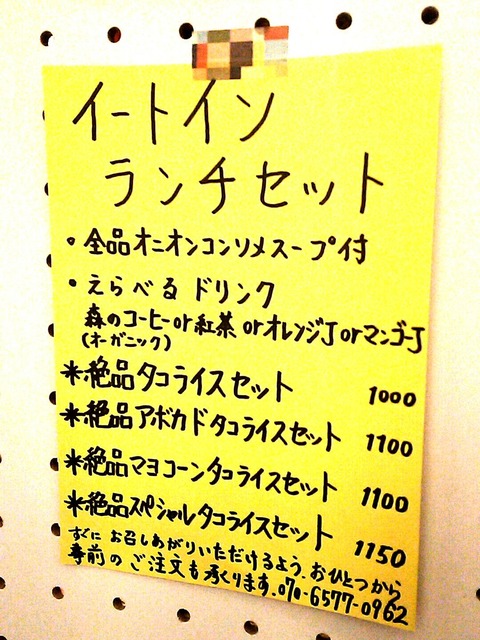 イートイン
ランチセット
・全品オニオンコンソメスープ付
・えらべるドリンク
森のコーヒーor紅茶orオレンジJorマンゴーJ
(オーガニック)
*絶品タコライスセット 1000
*絶品アボカドタコライスセット 1100
*絶品マヨコーンタコライスセット 1100
*絶品スペシャルタコライスセット 1150
すぐに お召しあがりいただけるよう、おひとつから
事前の ご注文も承ります。070-6577-0962